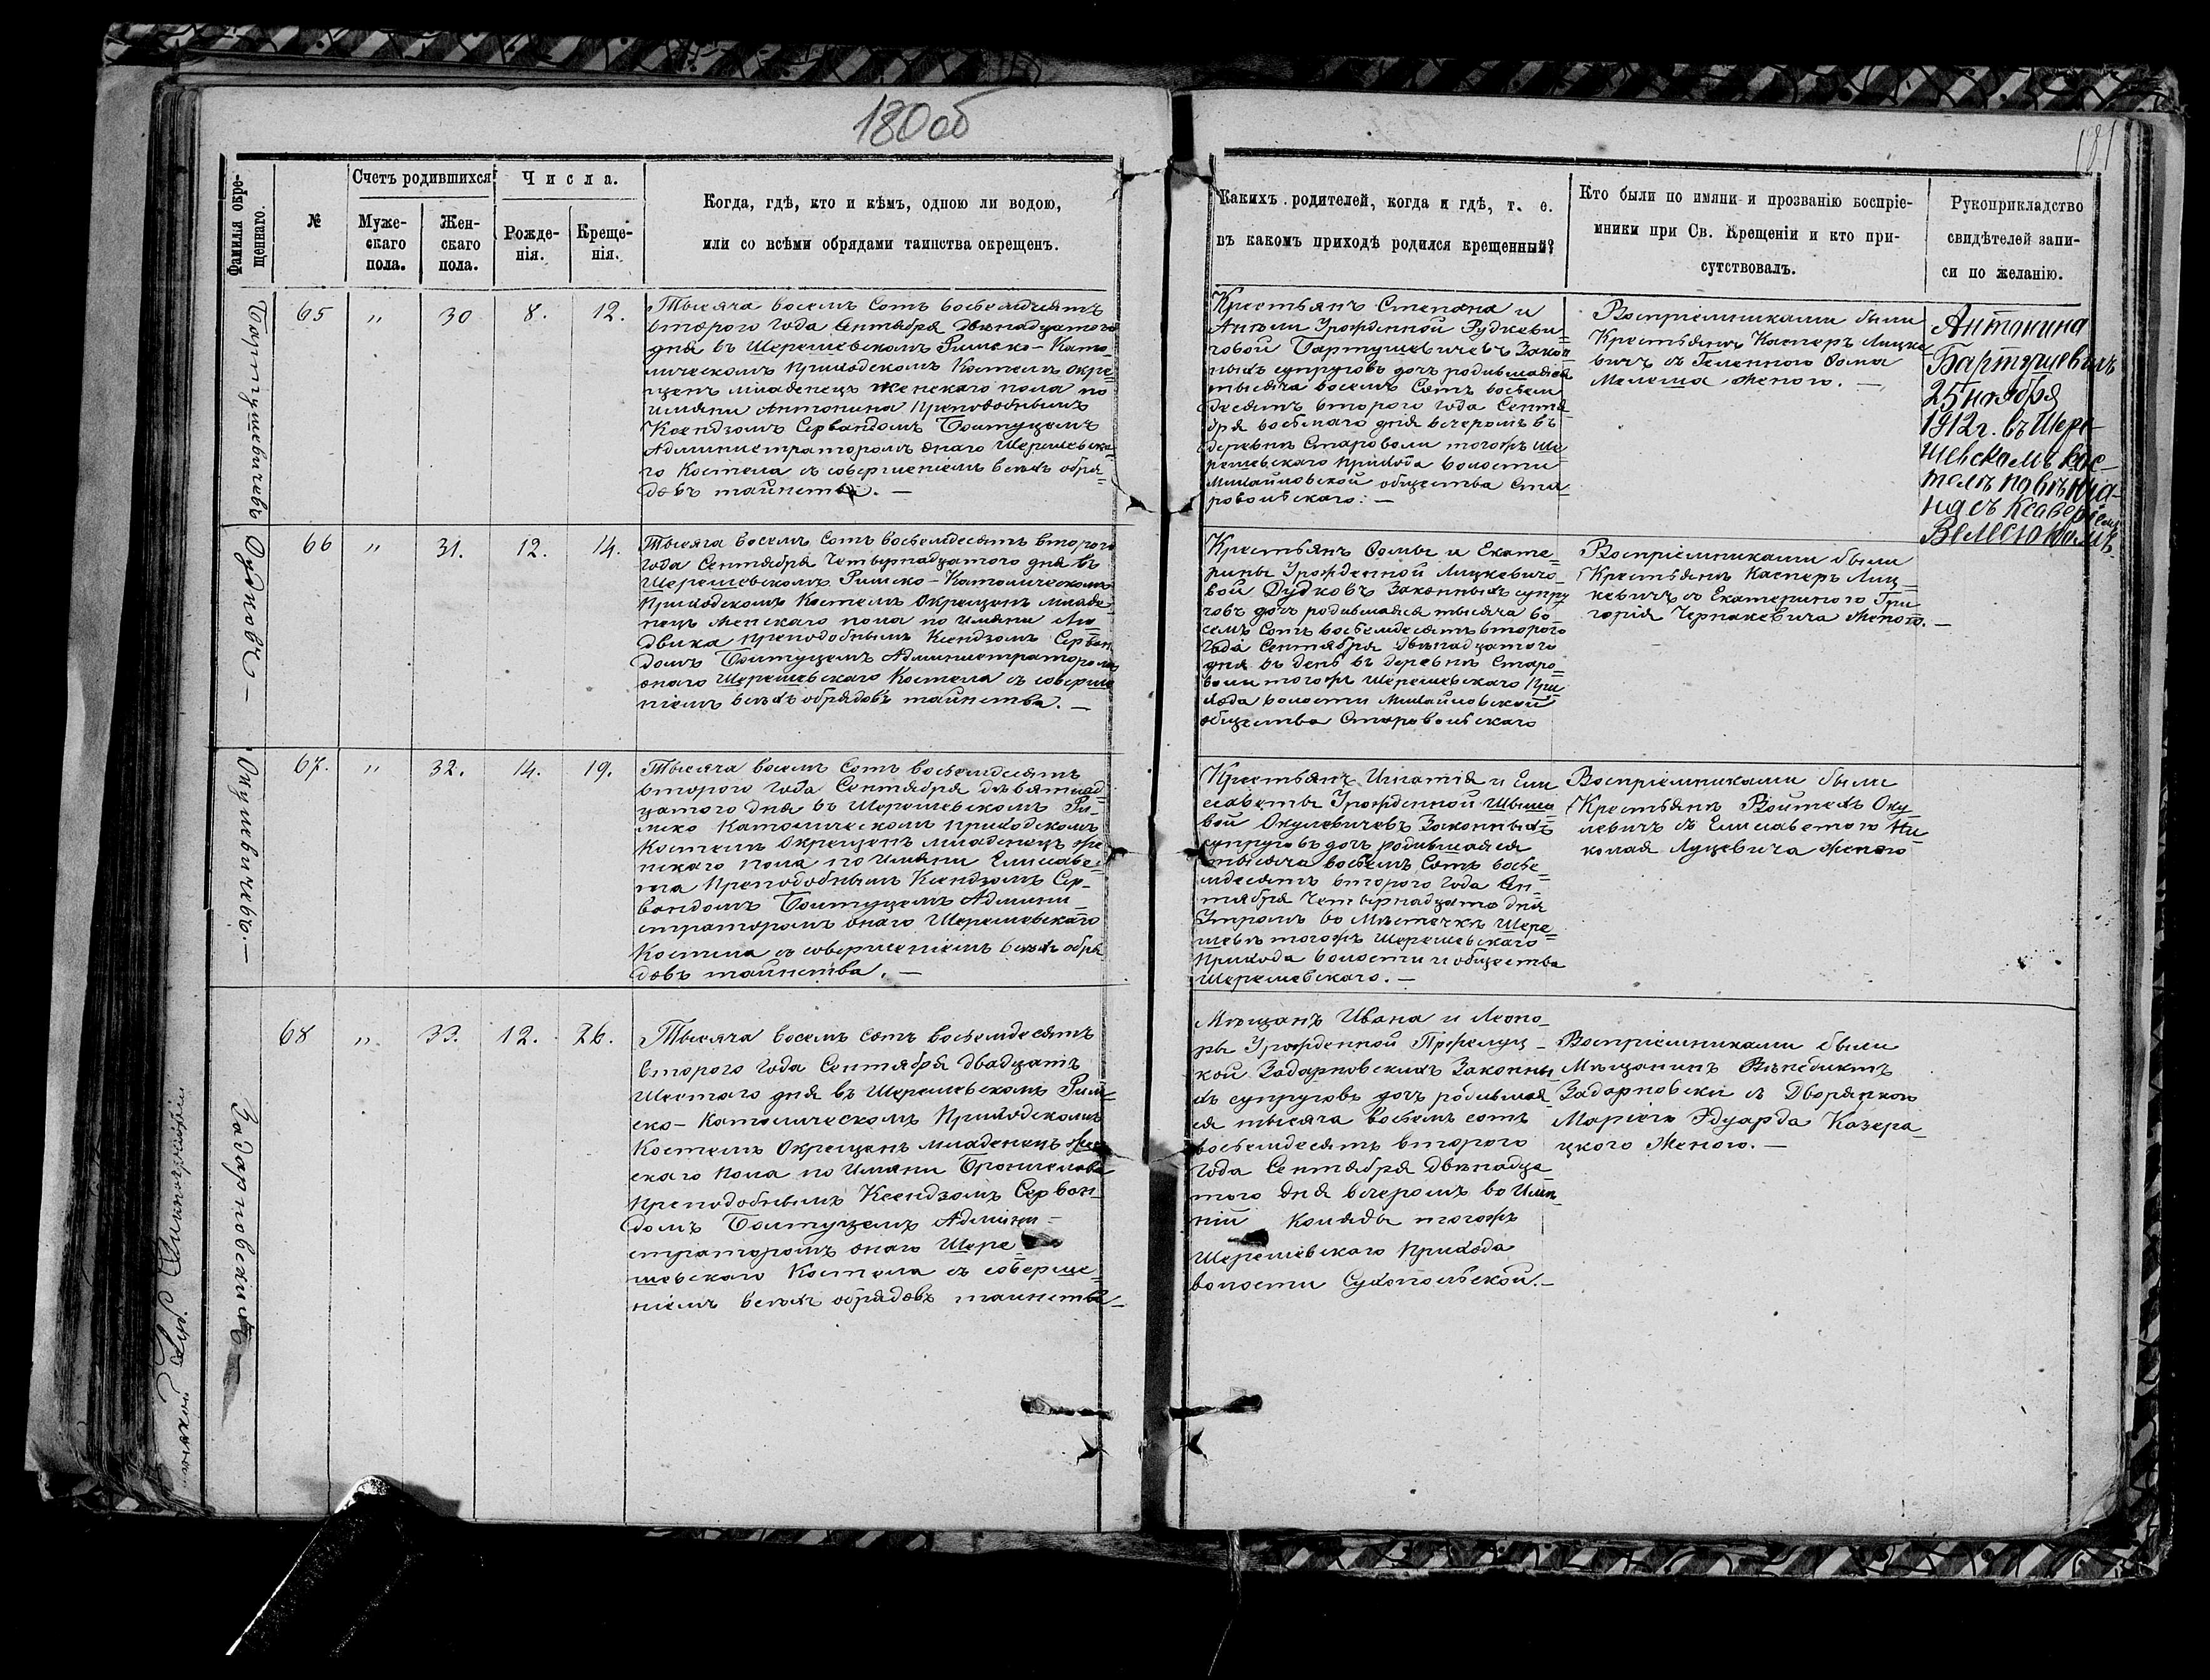 180 об
181
Фамилія окре-
щеннаго.
№
Счетъ родившихся
Муже-
скаго
пола.
Жен-
скаго
пола.
Числа.
Рожде-
нія.
Креще-
нія.
Когда, гдѣ, кто и кѣмъ, одною ли водою,
или со всѣми обрядами таинства окрещенъ.
Какихъ родителей, когда и гдѣ, т. е.
въ какомъ приходѣ родился крещенный?
Кто были по имяни и прозванію воспріе-
мники при Св. Крещеніи и кто при-
сутствовалъ.
Рукоприкладство
свидѣтелей запи-
си по желанію.
Бартушевичевъ
65 " 30 8. 12.
Тысяча восемъ сотъ восьмдесятъ
второго года Сентября двѣнадцатого
дня въ Шерешевскомъ Римско-Като-
лическомъ приходскомъ Костелѣ окре-
щенъ младенецъ женскаго пола по
имяни Антонина Преподобнымъ
Ксендзомъ Сервандомъ Болтуцемъ
Администраторомъ онаго Шерешевска-
го Костела съ совершеніемъ всѣхъ обря-
довъ таинства. —
Крестьянъ Степана и
Анѣли Урожденной Рудкеви-
човой Бартушевичевъ Закон-
ныхъ супруговъ дочь родившаяся
тысяча восемъ сотъ восьм-
десятъ второго года Сентя-
бря восьмаго дня вечеромъ въ
деревнѣ Староволи тогожъ Ше-
решевскаго прихода волости
Михайловской общества Ста-
ровольскаго: —
Воспріемниками были
Крестьянъ Касперъ Лицке-
вичъ съ Геленною Фома
Мелеша женою. —
Антонина
Бартушевичъ
25 ноября
1912 г. въ Шере-
шевскомъ кос-
телѣ повѣнча-
на съ Ксаверіемъ
Велесюкомъ.
Дудковъ —
66 " 31. 12. 14.
Тысяча восемъ сотъ восьмдесятъ второго
года Сентября Четырнадцатого дня въ
Шерешевскомъ Римско-Католическомъ
Приходскомъ Костелѣ Окрещенъ младе-
нецъ женскаго пола по имяни Лю-
двика преподобнымъ Ксендзомъ Серван-
домъ Болтуцемъ Администраторомъ
онаго Шерешевскаго Костела съ соверше-
ніемъ всѣхъ обрядовъ таинства. —
Крестьянъ Фомы и Екате-
рины Урожденной Лицкевичо-
вой Дудковъ Законныхъ супру-
говъ дочь родившаяся тысяча во-
семъ сотъ восьмдесятъ второго
года Сентября двѣнадцатого
дня въ день въ деревнѣ Старо-
воли тогожъ Шерешевскаго При-
хода волости Михайловской
общества Старовольскаго
Воспріемниками были
Крестьянъ Касперъ Лиц-
кевичъ съ Екатериною Гри-
горія Чернакевича женою. —
Окулевичевъ. —
67. " 32. 14. 19.
Тысяча восемъ сотъ восьмдесятъ
второго года Сентября девятнад-
цатого дня въ Шерешевскомъ Ри-
мско Католическомъ приходскомъ
Костелѣ Окрещенъ младенецъ же-
нскаго пола по имяни Елисаве-
та Преподобнымъ Ксендзомъ Сер-
вандомъ Болтуцемъ Админи-
страторомъ онаго Шерешевскаго
Костела съ совершеніемъ всѣхъ обря-
довъ таинства. —
Крестьянъ Игнатія и Ели-
саветы Урожденной
вой Окулевичевъ Законныхъ
супруговъ дочь родившаяся
тысяча восьемъ сотъ восьм-
десятъ второго года Сен-
тября Четырнадцато дня
Утромъ во Мѣстечкѣ Шере-
шевѣ тогожъ Шерешевскаго
Прихода волости и общества
Шерешевскаго. —
Воспріемниками были
Крестьянъ Войтехъ Оку-
левичъ съ Елисаветою Ни-
колая Луцевича женою
Задарновскихъ —
68 " 33. 12. 26.
Тысяча восемъ сотъ восьемдесятъ
второго года Сентября двадцать
шестого дня въ Шерешевскомъ Рим-
ско-Католическомъ Приходскомъ
Костелѣ Окрещенъ младенецъ жен-
скаго пола по имяни Бронислава
Преподобнымъ Ксендзомъ Серван-
домъ Болтуцемъ Админи-
страторомъ онаго Шере-
шевскаго Костела съ соверше-
ніемъ всѣхъ обрядовъ таинства —
Мѣщанъ Ивана и Леоно-
ры Урожденной
кой Задарновскихъ Законны-
хъ супруговъ дочь родившая-
ся тысяча восьемъ сотъ
восьемдесятъ второго
года Сентября двѣнадца-
того дня вечеромъ во Имѣ-
ніи Коляды тогожъ
Шерешевскаго прихода
волости Сухопольской. —
Воспріемниками были
Мѣщанинъ Венедиктъ
Задарновски съ Дворянкою
Маріею Эдуарда Казера-
цкого женою. —